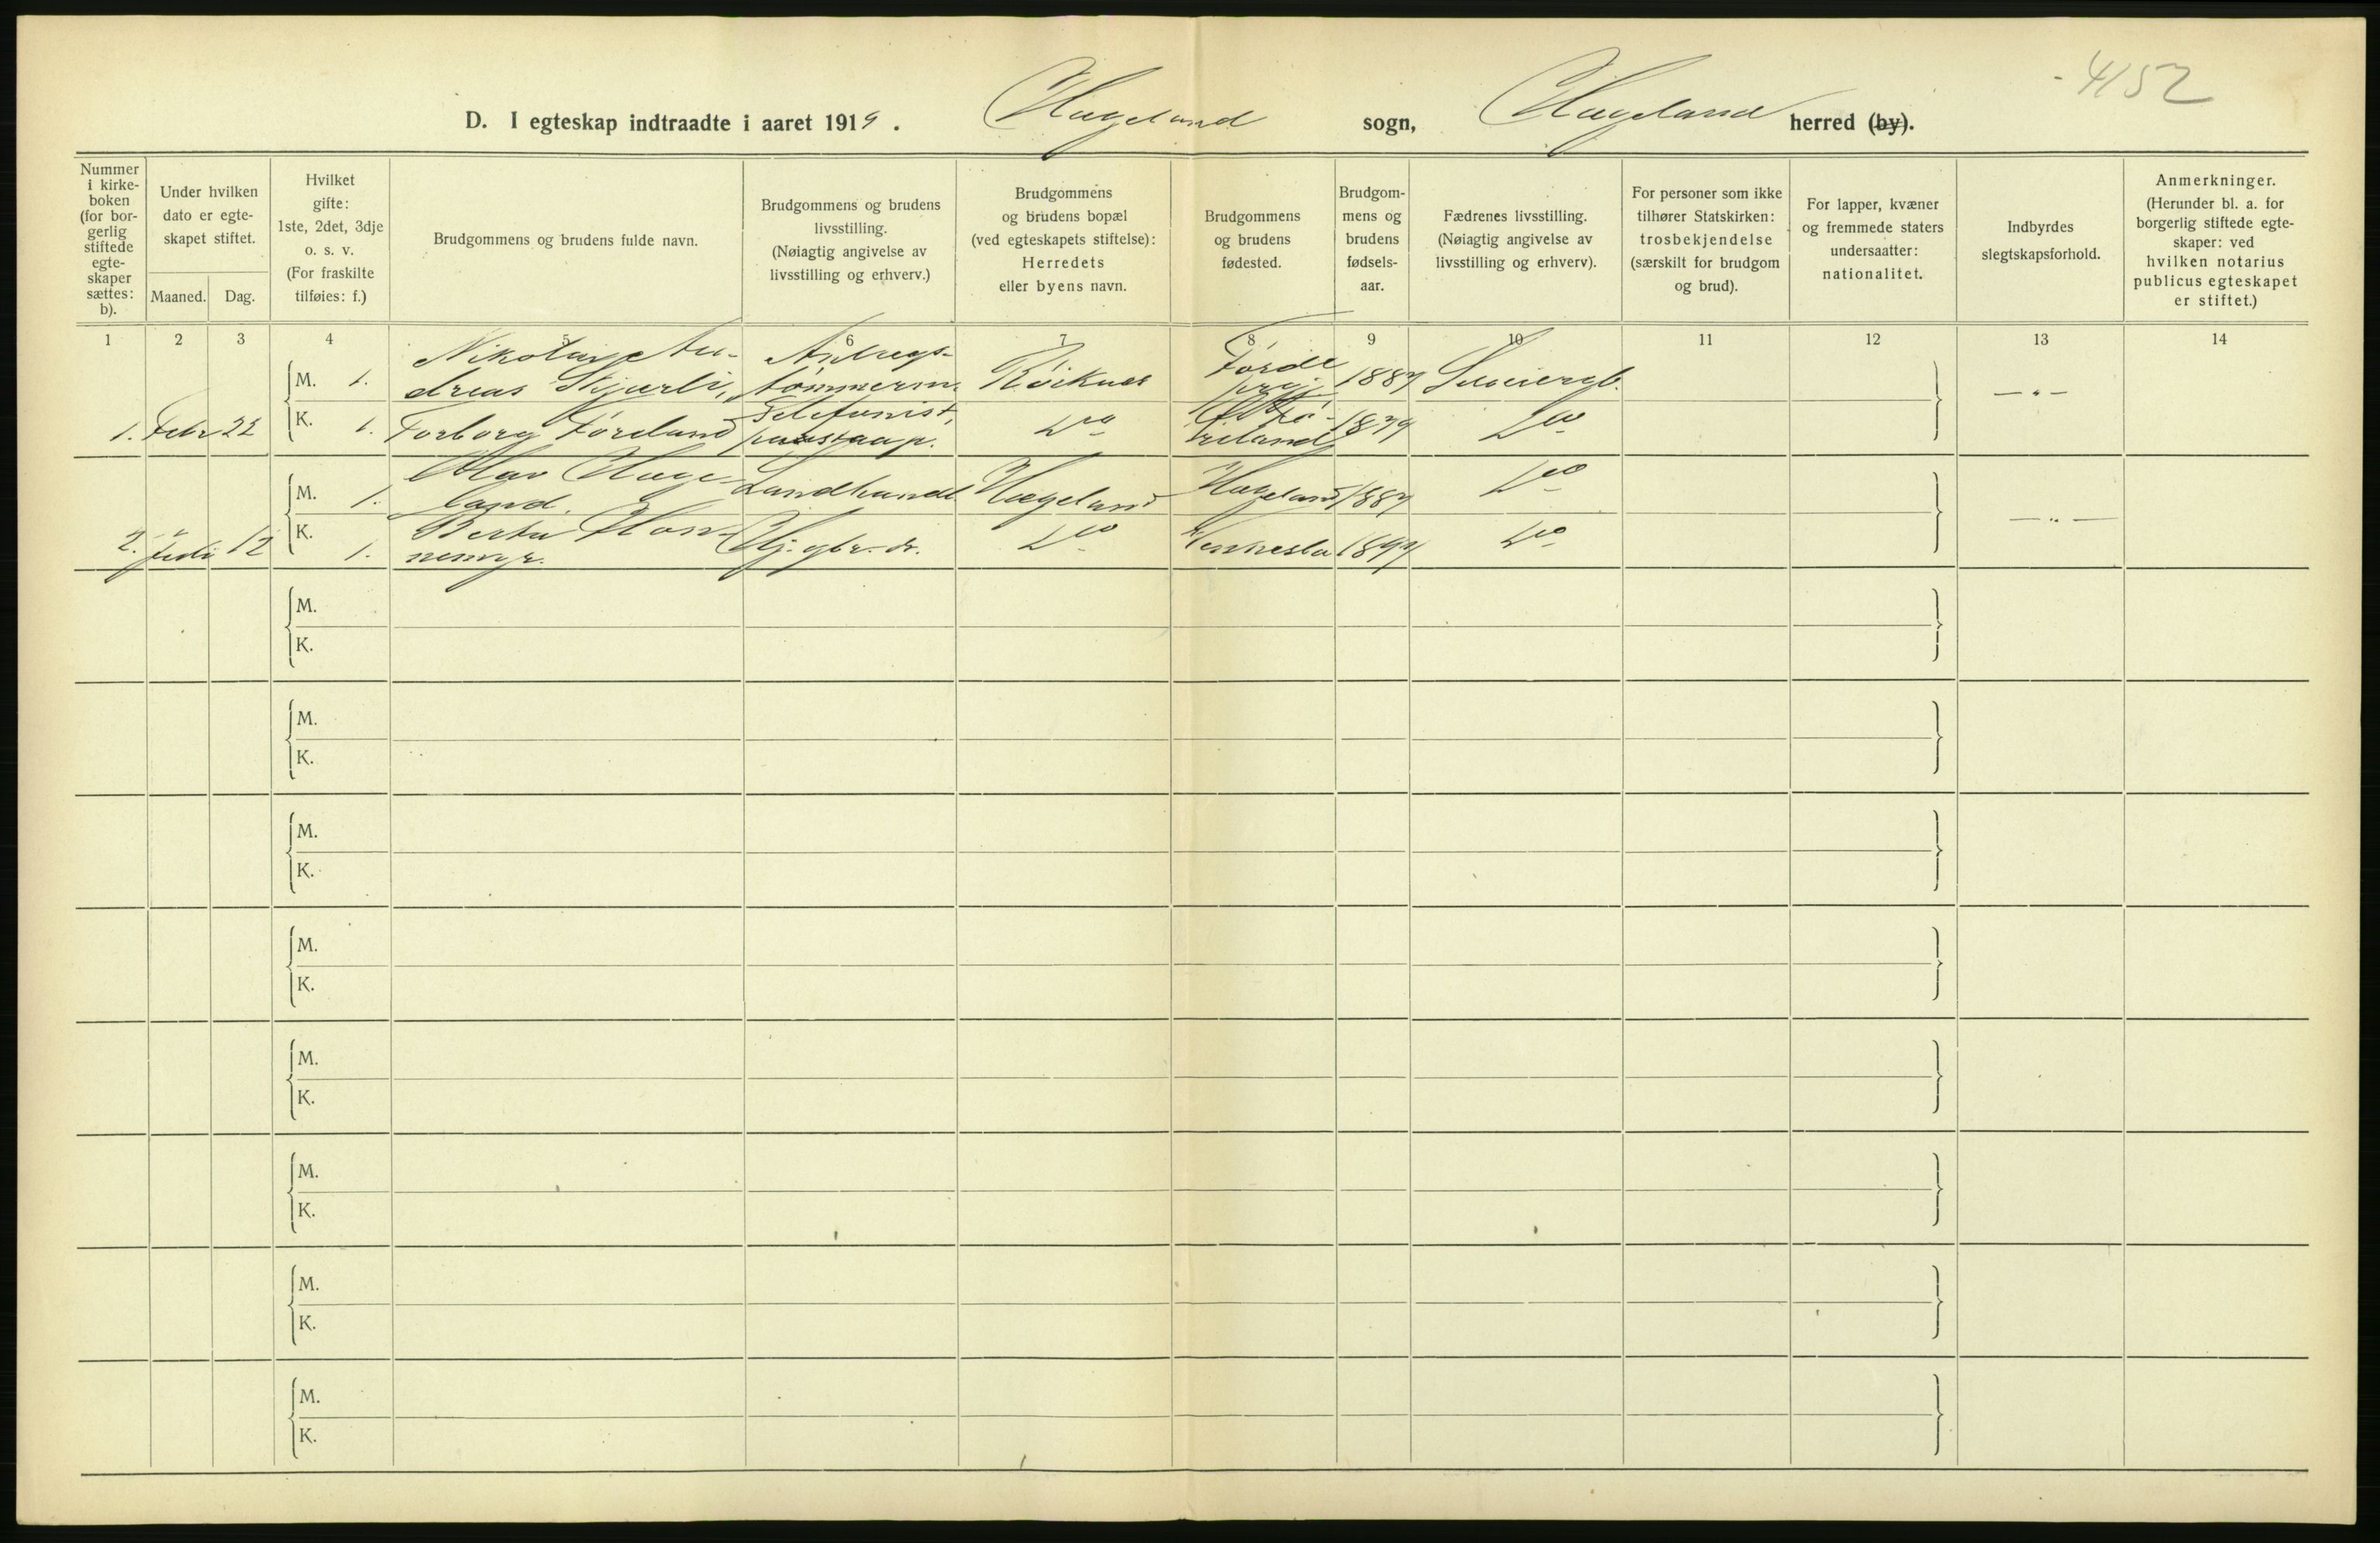 4152
D. I egteskap indtraadte i aaret 1919. Hægeland sogn, Hægeland herred (by).
Nummer i kirke-boken (for bor-gerlig stiftede egte-skaper sættes: b).
Under hvilken dato er egte-skapet stiftet.
Maaned. Dag.
Hvilket gifte: 1ste, 2det, 3dje o. s. v. (For fraskilte tilføies: f.)
Brudgommens og brudens fulde navn.
Brudgommens og brudens livsstilling. (Nøiagtig angivelse av livsstilling og erhverv.)
Brudgommens og brudens bopæl (ved egteskapets stiftelse): Herredets eller byens navn.
Brudgommens og brudens fødested.
Brudgom-mens og brudens fødsels-aar.
Fædrenes livsstilling. (Nøiagtig angivelse av livsstilling og erhverv).
For personer som ikke tilhører Statskirken: trosbekjendelse (særskilt for brudgom og brud).
For lapper, kvæner og fremmede staters undersaatter: nationalitet.
Indbyrdes slegtskapsforhold.
Anmerkninger. (Herunder bl. a. for borgerlig stiftede egte-skaper: ved hvilken notarius publicus egteskapet er stiftet.)
1 2 3 4 5 6 7 8 9 10 11 12 13 14
M. 1. Nikolai An-
dreas Anlegs-
tømmerm. Røiknes Førde 1887 Selveiergb. — " —
1. Febr 22 K. 1. Torborg Føreland Telefonist, do 1879 do
M. 1. Olav Hæge-
land. Landhandl. Hægeland Hægeland 1887 do
2. Juli 12 K. 1. Berta Hon-
nemyr. Hj. gbr. dr. do Vennesla 1897 do — " —
M.
K.
M.
K.
M.
K.
M.
K.
M.
K.
M.
K.
M.
K.
M.
K.